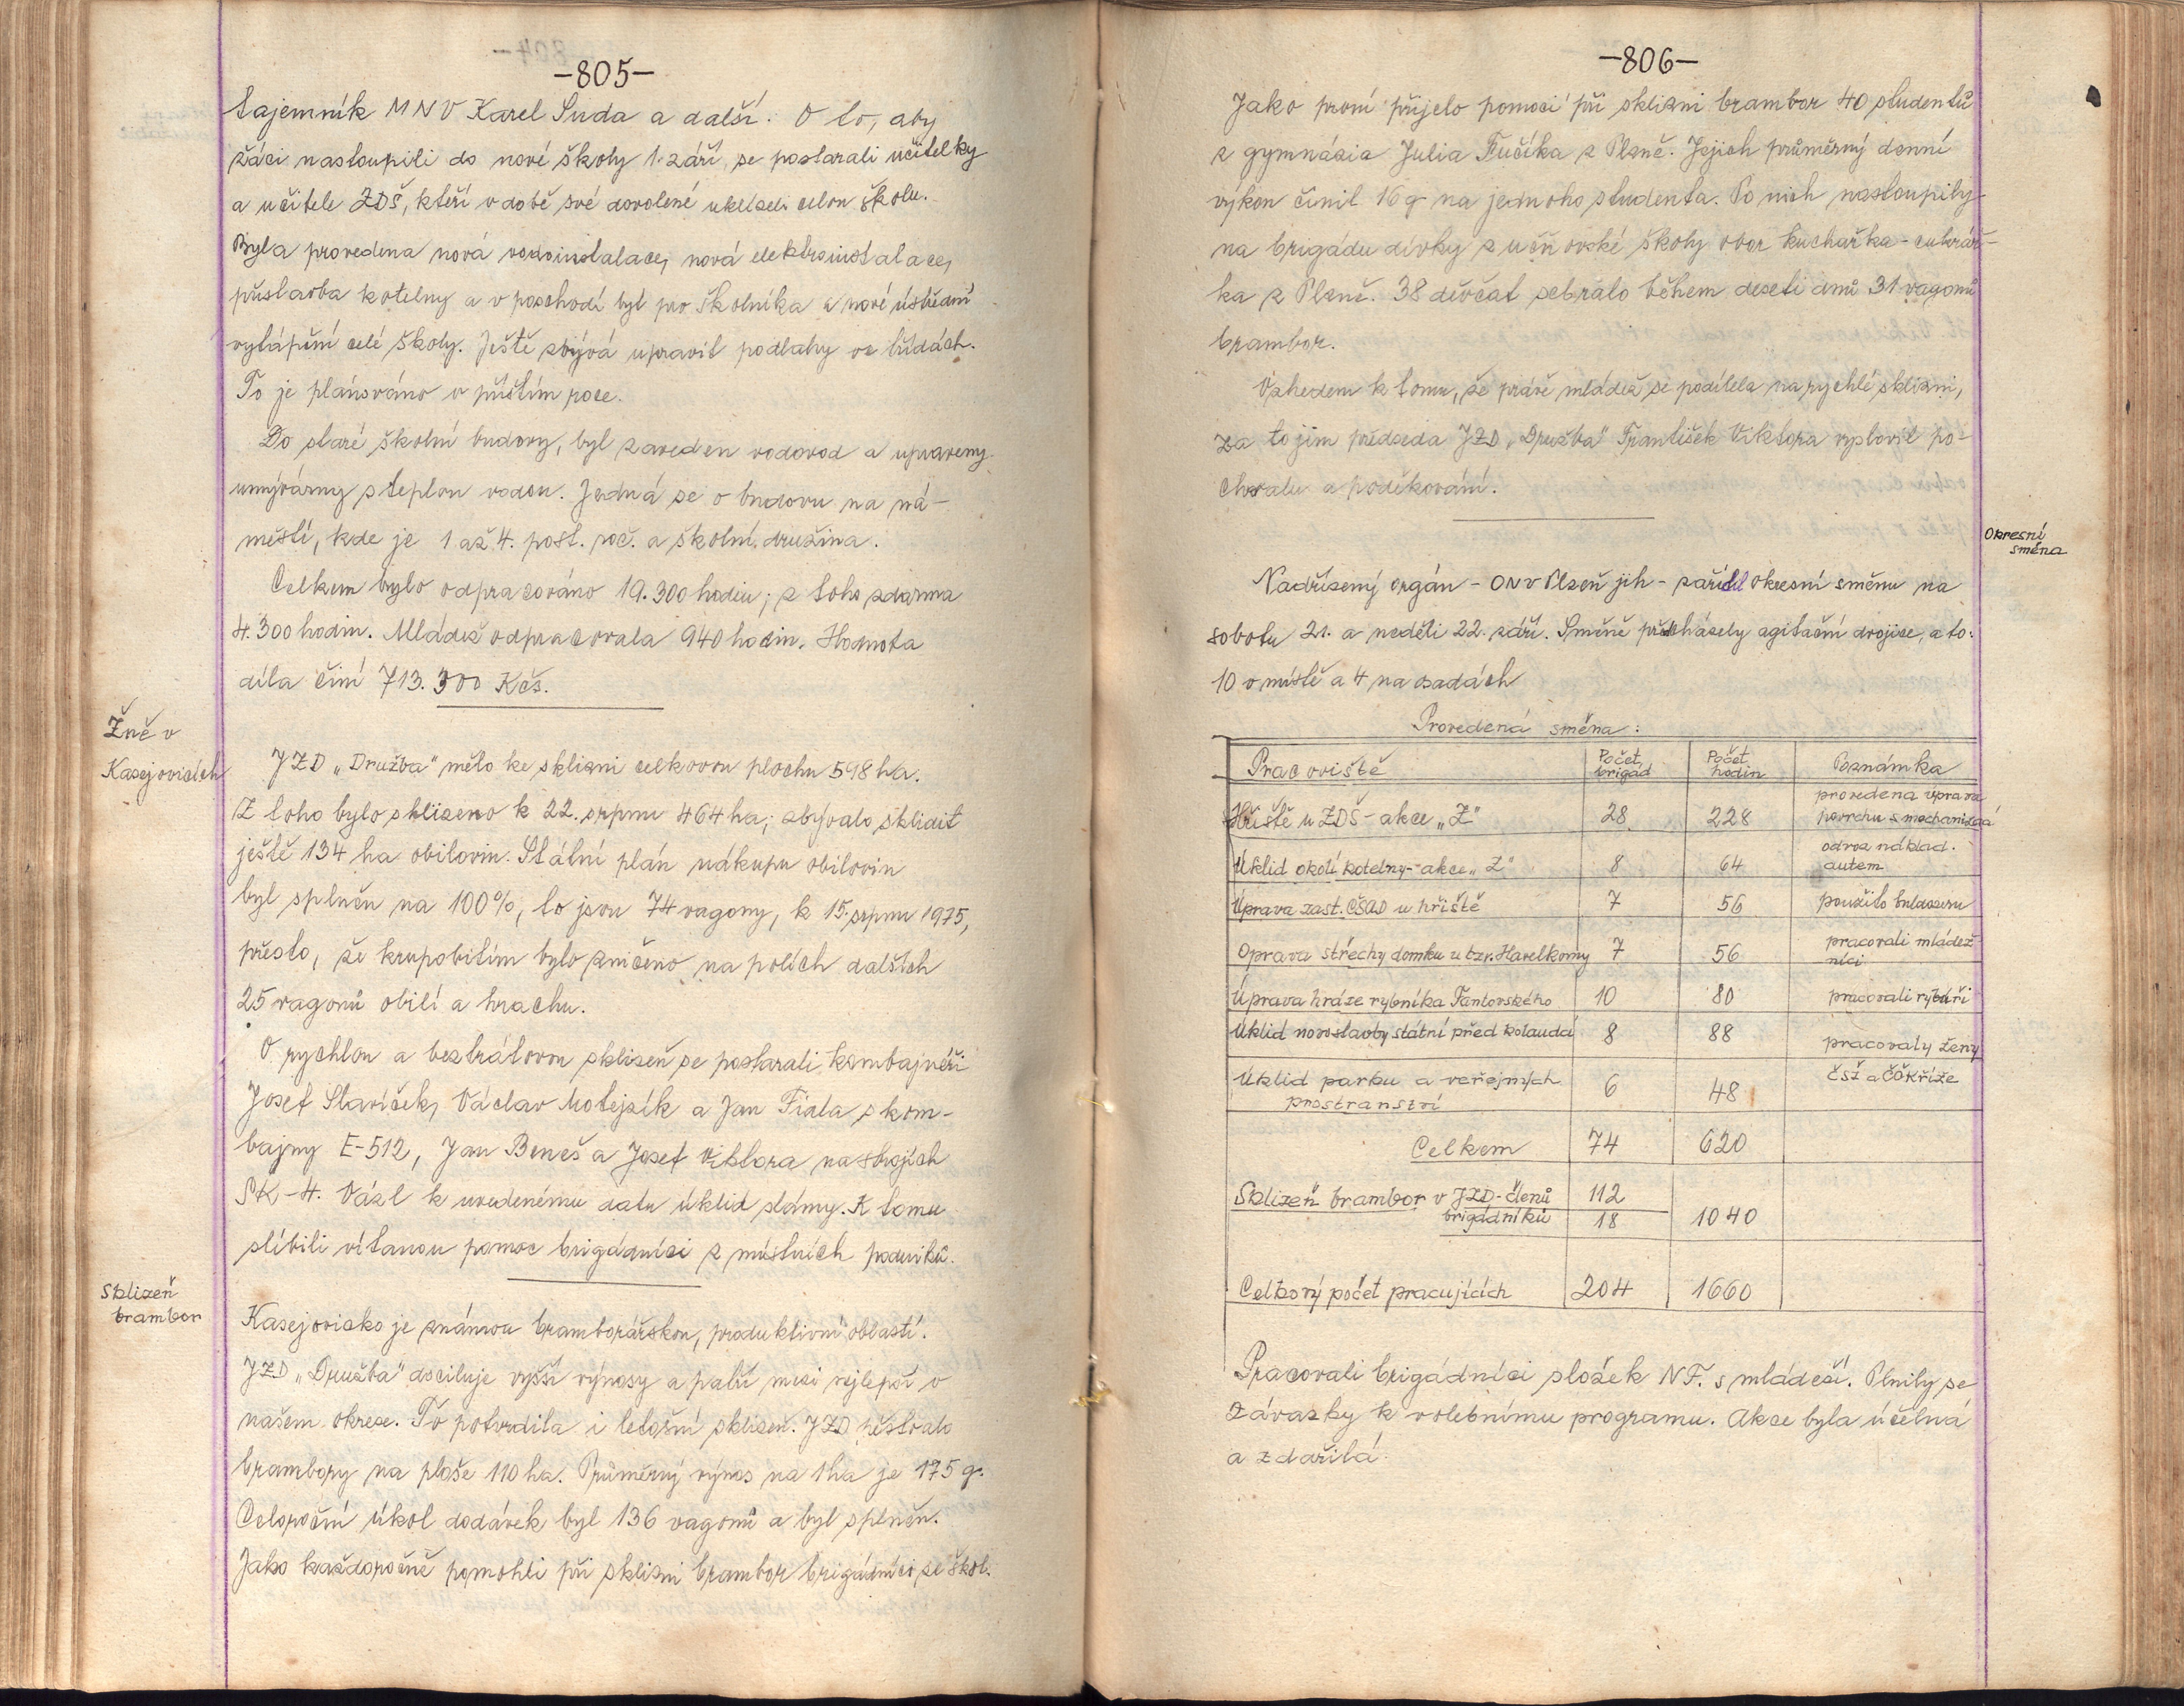 -805-
tajemník MNV Karel Suda a další. O to, aby
žáci nastoupili do nové školy 1. září, se postarali učitelky
a učitele ZDŠ, kteří v době své dovolené uklízeli celou školu.
Byla provedena nová vodoinstalace, nová elektroinstalace,
přístavba kotelny a v poschodí byt pro školníka a nové ústřední
vytápění celé školy. Ještě zbývá upravit podlahy ve třídách.
To je plánováno v příštím roce.
Do staré školní budovy, byl zaveden vodovod a upraveny
umývárny s teplou vodou. Jedná se o budovu na ná-
městí, kde je 1 až 4. post. roč. a školní družina.
Celkem bylo odpracováno 19.300 hodin; z toho zdarma
4.300 hodin. Mládež odpracovala 940 hodin. Hodnota
díla činí 713.300 Kčs.
Žně v
Kasejovicích
JZD „Družba" mělo ke sklizni celkovou plochu 598 ha.
Z toho bylo sklizeno k 22. srpnu 464 ha; zbývalo sklidit
ještě 134 ha obilovin. Státní plán nákupu obilovin
byl splněn na 100%, to jsou 74 vagony, k 15. srpnu 1975,
přesto, že krupobitím bylo zničeno na polích dalších
25 vagonů obilí a hrachu.
O rychlou a beztrátovou sklizeň se postarali kombajnéři
Josef Slavíček, Václav Motejzík a Jan Fiala s kom-
bajny E-512, Jan Beneš a Josef Viktora na strojích
SK-4. Vázl k uvedenému datu úklid slámy. K tomu
slíbili vítanou pomoc brigádníci z místních podniků.
Sklizeň
brambor
Kasejovicko je známou bramborářskou, produktivní oblastí.
JZD „Družba" dociluje vyšší výnosy a patří mezi nejlepší v
našem okrese. To potvrdila i letošní sklizeň. JZD pěstovalo
brambory na ploše 110 ha. Průměrný výnos na 1 ha je 175 q.
Celoroční úkol dodávek byl 136 vagonů a byl splněn.
Jako každoročně pomohli při sklizni brambor brigádníci ze škol.
-806-
Jako první přijelo pomoci při sklizni brambor 40 studentů
z gymnázia Julia Fučíka z Plzně. Jejich průměrný denní
výkon činil 16 q na jednoho studenta. Po nich nastoupily
na brigádu dívky z učňovské školy obor kuchařka-cukrář-
ka z Plzně. 38 děvčat sebralo během deseti dnů 31 vagonů
brambor.
Vzhledem k tomu, že právě mládež se podílela na rychlé sklizni,
za to jim předseda JZD „Družba" František Viktora vyslovil po-
chvalu a poděkování.
Okresní
směna
Nadřízený orgán - ONV Plzeň jih - zařídil okresní směnu na
sobotu 21. a neděli 22. září. Směně předcházely agitační dvojice, a to:
10 v místě a 4 na osadách
Provedená směna:
Pracoviště Počet brigád Počet hodin Poznámka
Hřiště u ZDŠ - akce „Z" 28 228 provedena úprava povrchu s mechanizací
Úklid okolí kotelny - akce „Z" 8 64 odvoz náklad. autem
Úprava zast. ČSAD u hřiště 7 56 použito buldozeru
Oprava střechy domku u tzv. Havelkovny 7 56 pracovali mládežníci
Úprava hráze rybníka Fantovského 10 80 pracovali rybáři
Úklid novostavby státní před kolaudací 8 88
pracovaly ženy
Úklid parku a veřejných prostranství 6 48 ČSŽ a ČČKříže
Celkem 74 620
Sklizeň brambor v JZD - členů 112
brigádníků 18 1040
Celkový počet pracujících 204 1660
Pracovali brigádníci složek NF. s mládeží. Plnily se
závazky k volebnímu programu. Akce byla účelná
a zdařilá.